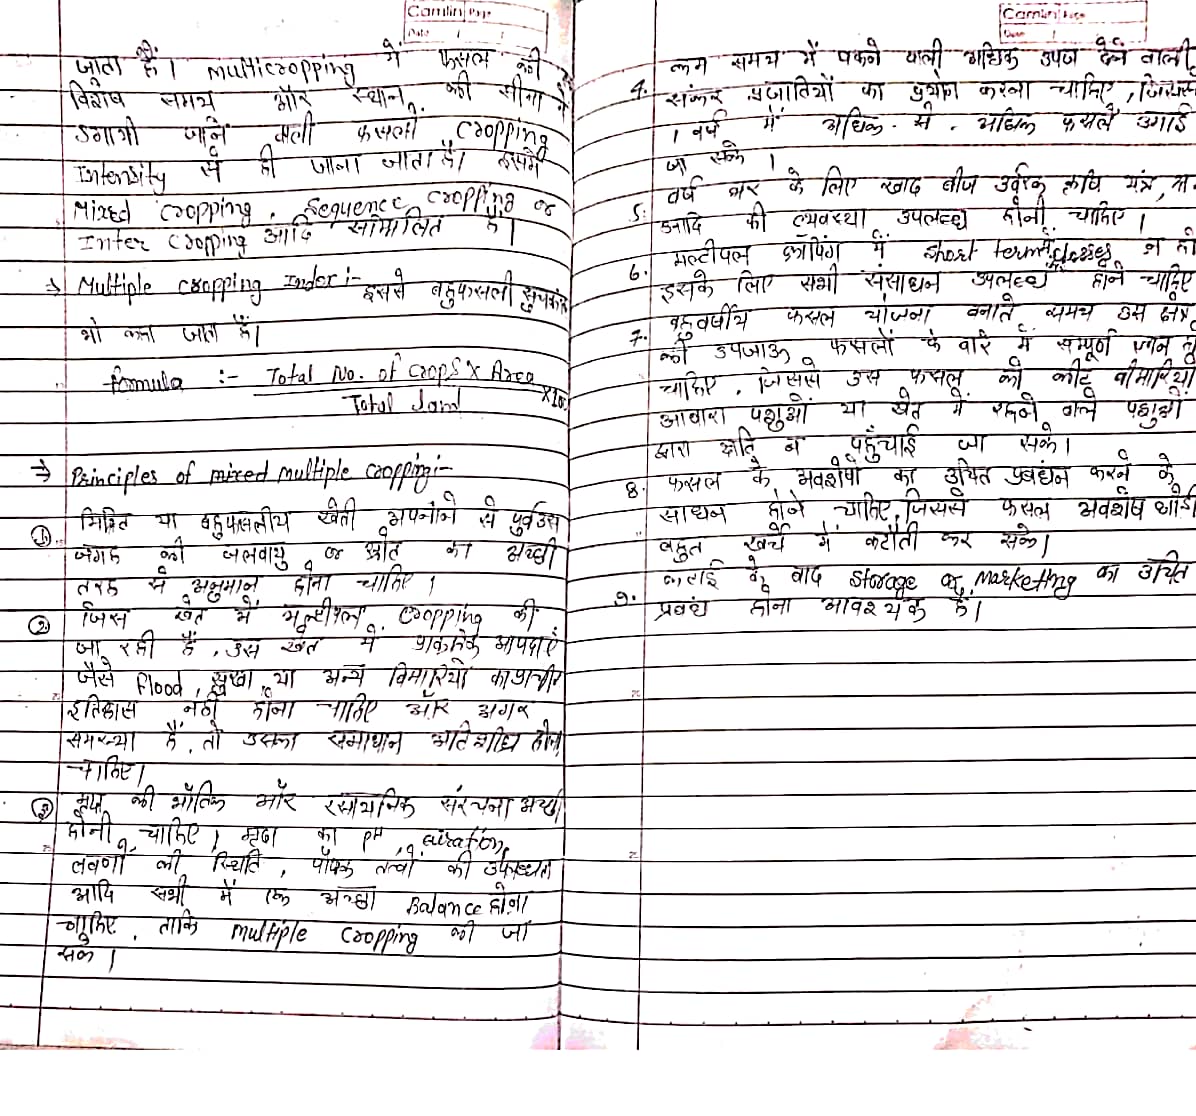 Camlin Page
Date / /
जाता है। Multicropping में फसल की
विशेष समय और स्थान की सीमा में
उगायी जाने वाली फसलों Cropping
Intensity से ही जाना जाता है। इसमें
Mixed Cropping, Sequence Cropping or
Inter Cropping आदि सामिलित है।
→ Multiple Cropping Index :- इससे बहुफसली सूचकांक
भी कहा जाता है।
formula :- Total No. of Crops × Area
Total Land
→ Principles of mixed multiple cropping:-
① मिश्रित या बहुफसलीय खेती अपनाने से पूर्व उस
जगह की जलवायु or स्रोत का अच्छी
तरह से अनुमान होना चाहिए।
② जिस खेत में मल्टीपल Cropping की
जा रही है, उस खेत में प्राकृतिक आपदाएं
जैसे flood, सुखा या अन्य बिमारियों का प्राचीन
इतिहास नहीं होना चाहिए और अगर
समस्या है, तो उसका समाधान अतिशीघ्र होना
चाहिए।
③ मृदा की भौतिक और रसायनिक संरचना अच्छी
होनी चाहिए, मृदा का PH,
लवणों की स्थिति, पोषक तत्वों की उपलब्धता
आदि सभी में एक अच्छा Balance होना
चाहिए, ताकि multiple cropping की जा
सके।
Camlin Page
Date / /
4. कम समय में पकने वाली अधिक उपज देने वाली
संकर प्रजातियों का प्रयोग करना चाहिए, जिससे
1 वर्ष में अधिक से अधिक फसलें उगाई
जा सके।
5. वर्ष भर के लिए खाद बीज उर्वरक कृषि यंत्र,
आदि की व्यवस्था उपलब्ध होनी चाहिए।
6. मल्टीपल क्रॉपिंग में short term न हो
इसके लिए सभी संसाधन उपलब्ध होने चाहिए
7. बहुवर्षीय फसल योजना बनाते समय उस क्षेत्र
की उपजाऊ फसलों के बारे में सम्पूर्ण ज्ञान
चाहिए, जिससे उस फसल को कीट बीमारियों
आवारा पशुओं या खेत में रहने वाले पशुओं
द्वारा क्षति न पहुँचाई जा सके।
8. फसल के अवशेषों का उचित प्रबंधन करने के
साधन होने चाहिए, जिससे फसल अवशेष थोड़ी
बहुत खर्चे में कटौती कर सके।
9. कटाई के बाद storage or marketing का उचित
प्रबंध होना आवश्यक है।